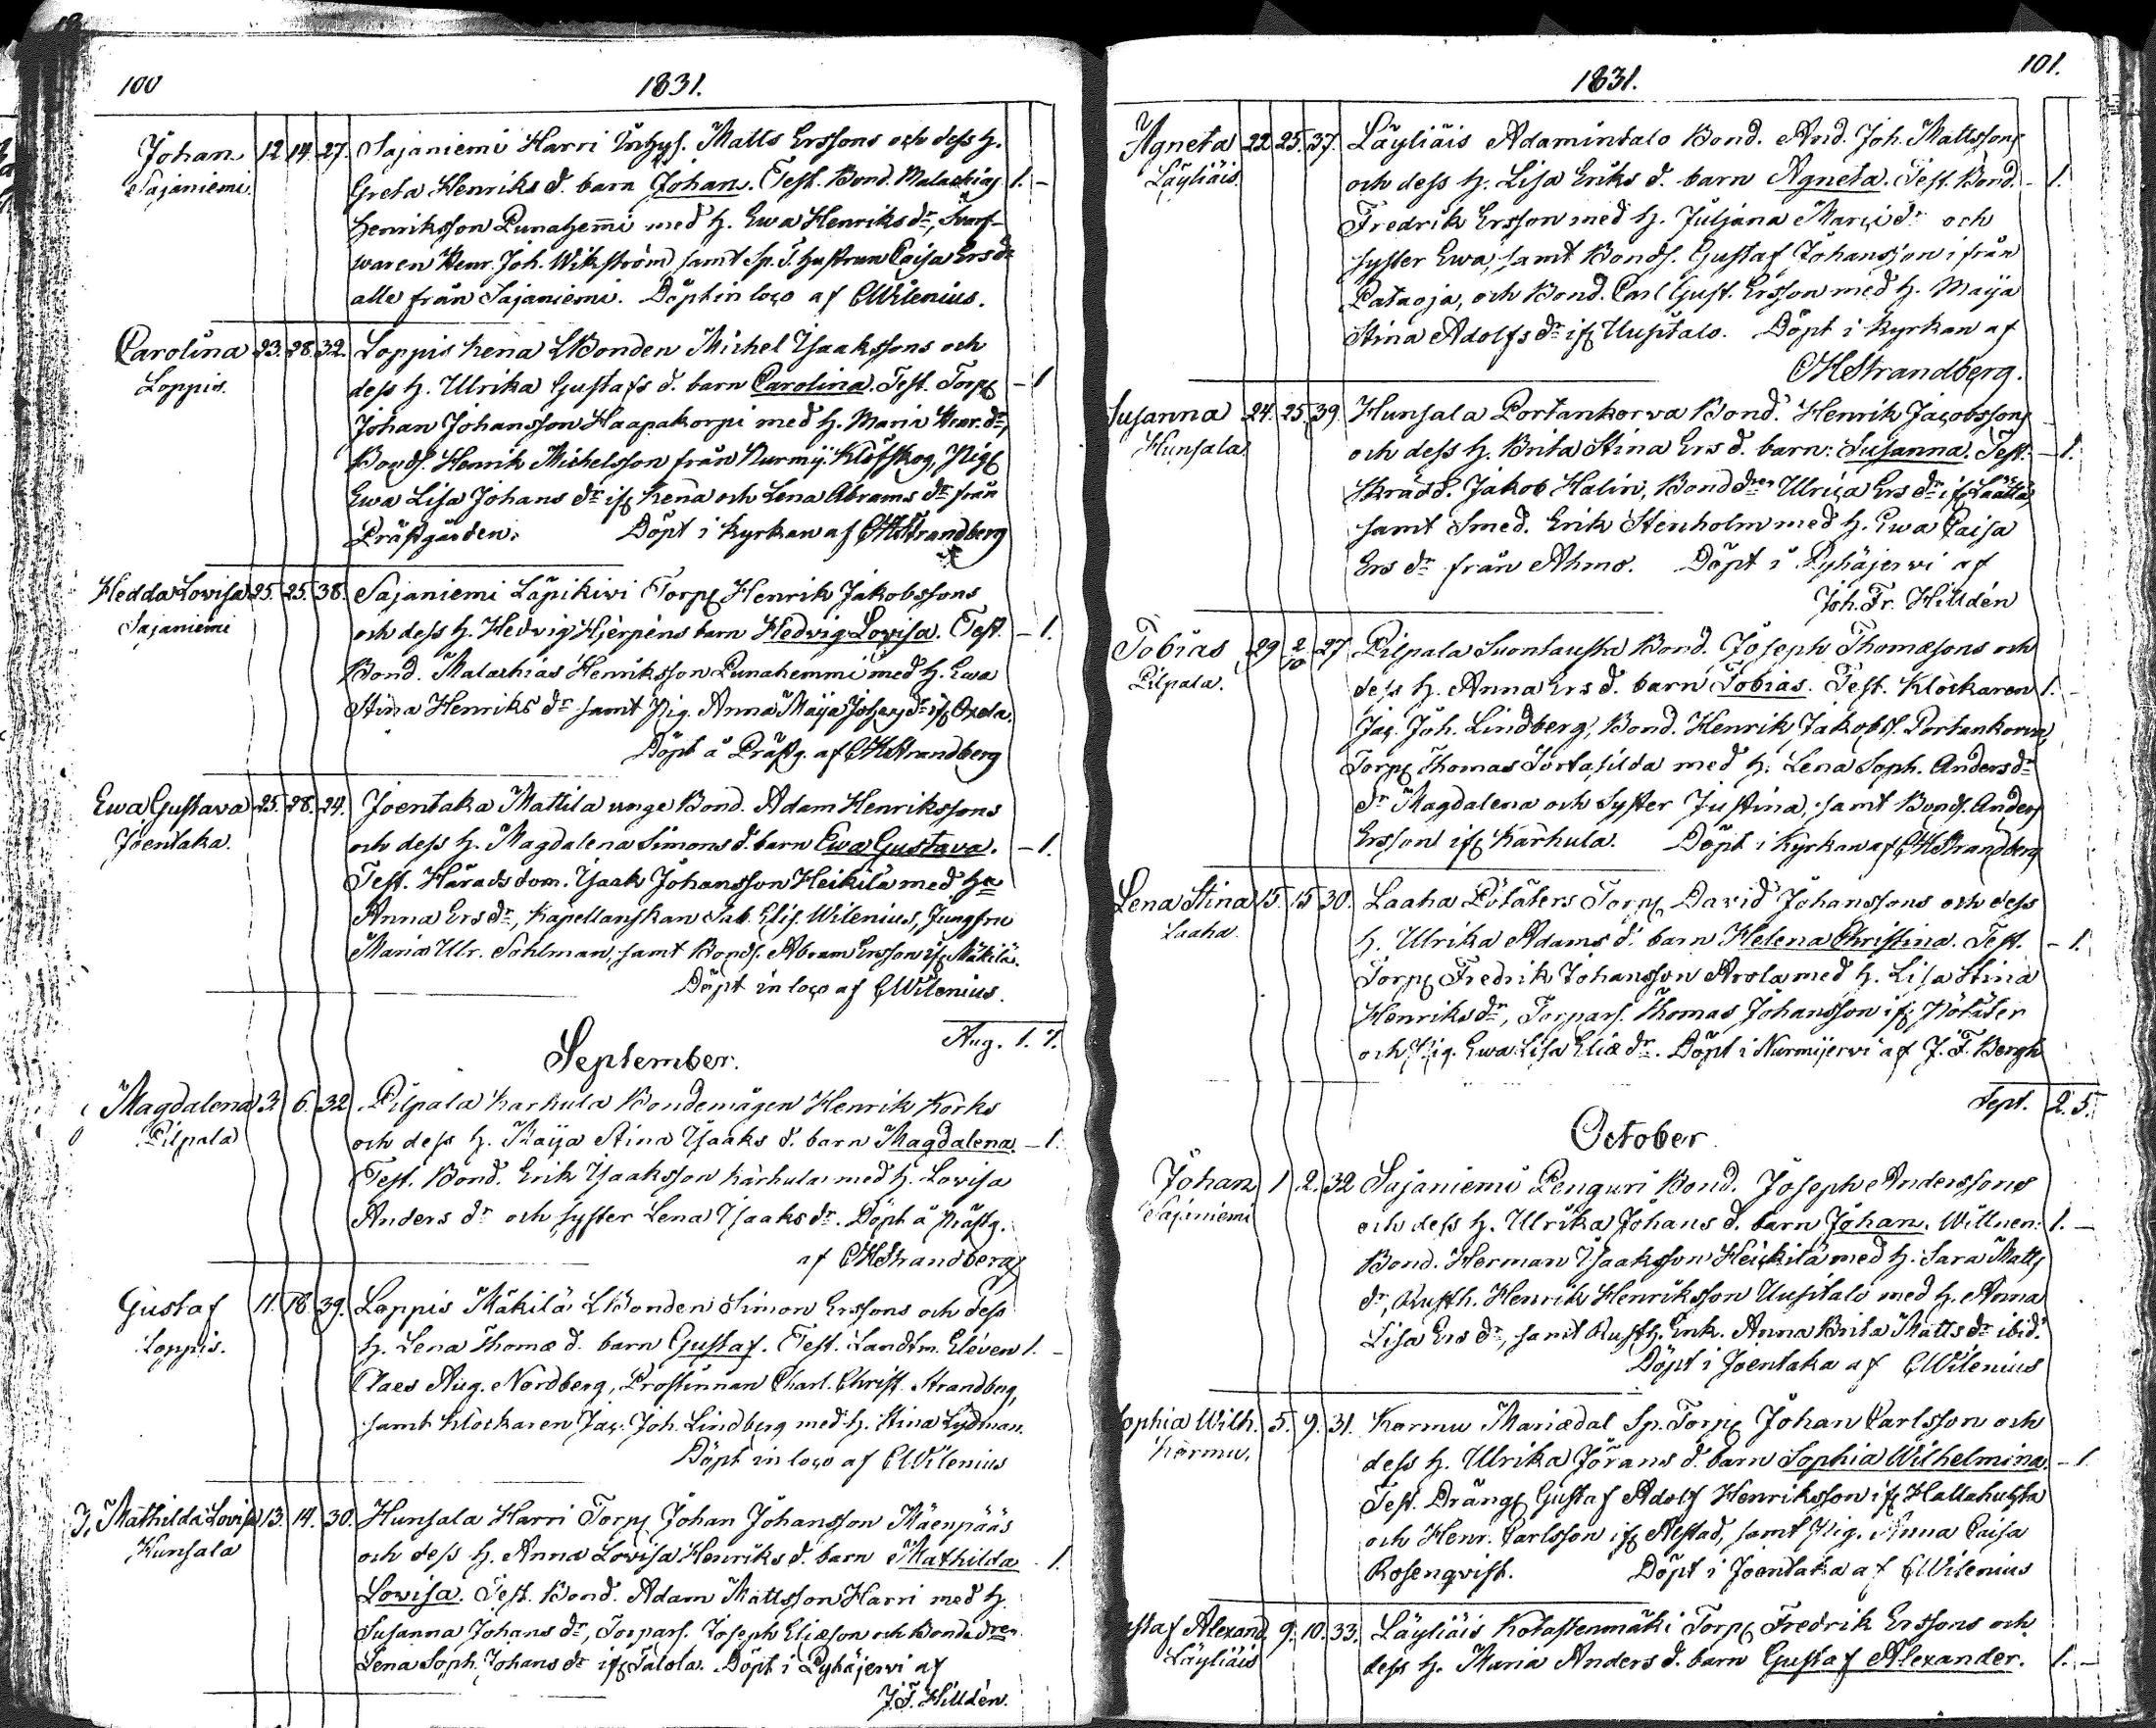 100
1831.
Johan 12 14. 27. Sajaniemi Harri Inhys. Matts Erssons och dess h.
Sajaniemi. Greta Henriks d. barn Johan. Test. Bond. Malachias 1. –
Henriksson Punahemi med h. Ewa Henriks dr, Swarf-
waren Henr. Joh. Wikström samt Sp. T. hustrun Caisa Ers dr
alle från Sajaniemi. Döpt in loco af CWilenius.
Carolina 23. 28. 32. Loppis Kena LBonden Michel Ysaakssons och
Loppis. dess h. Ulrika Gustafs d. barn Carolina. Test. Torp. – 1
Johan Johansson Haapakorpi med h. Maria Henr. dr,
Bonds. Henrik Michelsson från Nurmij. Klöfskog, Pig.
Ewa Lisa Johans dr if. Kena och Lena Abrams dr från
Prästgården. Döpt i Kyrkan af CHStrandberg
Hedda Lovisa 25. 25. 38. Sajaniemi Läpikivi Torp. Henrik Jakobssons
Sajaniemi och dess h. Hedvig Hjerpens barn Hedvig Lovisa. Test. – 1.
Bond. Malachias Henriksson Punahemmi med h. Ewa
Stina Henriks dr samt Pig. Anna Maija Johans dr if. Oxela.
Döpt å Prästg. af CHStrandberg
Ewa Gustava 25. 28. 24. Joentaka Mattila unge Bond. Adam Henrikssons
Joentaka. och dess h. Magdalena Simons d. barn Ewa Gustava. – 1.
Test. Häradsdom. Ysaak Johansson Heikilä med ha
Anna Ers dr, Kapellanskan Sab. Elis. Wilenius, Jungfru
Maria Ulr. Sohlman, samt Bonds. Abram Ersson if. Mäkilä.
Döpt in loco af CWilenius.
Aug. 1. 7.
September.
Magdalena 3. 6. 32 Pilpala Karhula Bondemågen Henrik Korks
Pilpala och dess h. Maija Stina Ysaaks d. barn Magdalena. – 1.
Test. Bond. Erik Ysaaksson Karhula med h. Lovisa
Anders dr och syster Lena Ysaaks dr. Döpt å Prästg.
af CHStrandberg
Gustaf 11. 18 39. Loppis Mäkilä LBonden Simon Erssons och dess
Loppis. h. Lena Thomæ d. barn Gustaf. Test. Landtm. Eleven 1. –
Claes Aug. Nordberg, Prostinnan Charl. Christ. Strandberg,
samt Klockaren Jac. Joh. Lindberg med h. Stina Lydman.
Döpt in loco af CWilenius
Mathilda Lovisa 13. 14. 30. Hunsala Harri Torp. Johan Johansson Mäenpääs
Hunsala och dess h. Anna Lovisa Henriks d. barn Mathilda – 1.
Lovisa. Test. Bond. Adam Mattsson Harri med h.
Susanna Johans dr, Torpars. Joseph Eliæson och Bondedren
Lena Soph. Johans dr if. Talola. Döpt i Pyhäjerwi af
J.F. Hilldén.
101.
1831.
Agneta 22 25. 37. Läyliäis Adamintalo Bond. And. Joh. Mattssons
Läyliäis. och dess h. Lisa Eriks d. barn Agneta. Test. Bond. – 1.
Fredrik Ersson med h. Juljana Marci dr och
syster Ewa, samt Bonds. Gustaf Johansson ifrån
Pataoja, och Bond. Carl Gust. Ersson med h. Maija
Stina Adolfs dr if. Uusitalo. Döpt i Kyrkan af
CHStrandberg.
Susanna 24. 25. 39. Hunsala Portankorva Bond. Henrik Jacobssons
Hunsala och dess h. Brita Stina Ers d. barn: Susanna. Test. – 1.
Skrädd. Jakob Halin, Bonddren Ulrica Ers dr if. Laattä,
samt Smed. Erik Stenholm med h. Ewa Caisa
Ers dr från Ahmo. Döpt i Pyhäjerwi af
Joh. Fr. Hilldén
Tobias 29 2/10 27 Pilpala Suontausta Bond. Joseph Thomæsons och
Pilpala. dess h. Anna Ers d. barn Tobias. Test. Klockaren 1. –
Jac. Joh. Lindberg, Bond. Henrik Jakobss. Portankorva,
Torp. Thomas Sortasilda med h. Lena Soph. Anders dr
dr Magdalena och syster Justina, samt Bonds. Anders
Ersson if. Karhula. Döpt i Kyrkan af CHStrandberg
Lena Stina 15. 15 30. Laaha Potäters Torp. David Johanssons och dess
Laaha. h. Ulrika Adams d. barn Helena Christina. Test. – 1.
Torp. Fredrik Johansson Arola med h. Lisa Stina
Henriks dr, Torpars. Thomas Johansson if. Potäter
och Pig. Ewa Lisa Eliæ dr. Döpt i Nurmijerwi af J. F. Bergh
Sept. 2. 5.
October
Johan 1 2. 32 Sajaniemi Penguri Bond. Joseph Anderssons
Sajaniemi och dess h. Ulrika Johans d. barn Johan. Wittnen: 1. –
Bond. Herman Ysaaksson Heickilä med h. Sara Matts
dr, Rusth. Henrik Henriksson Uusitalo med h. Anna
Lisa Ers dr, samt Rusth. Enk. Anna Brita Matts dr ibid.
Döpt i Joentaka af CWilenius
ophia Wilh. 5. 9. 31. Kormu Mariædal Sp. Torp. Johan Carlsson och
Kormu. dess h. Ulrika Jörans d. barn Sophia Wilhelmina. – 1.
Test. Dräng. Gustaf Adolf Henriksson if. Hallahuhta
och Henr. Carlsson if. Alestad, samt Pig. Anna Caisa
Rosenqvist. Döpt i Joentaka af CWilenius
ustaf Alexand. 9. 10. 33. Läyliäis Kotastenmäki Torp. Fredrik Erssons och
Läyliäis dess h. Maria Anders d. barn Gustaf Alexander. 1. –